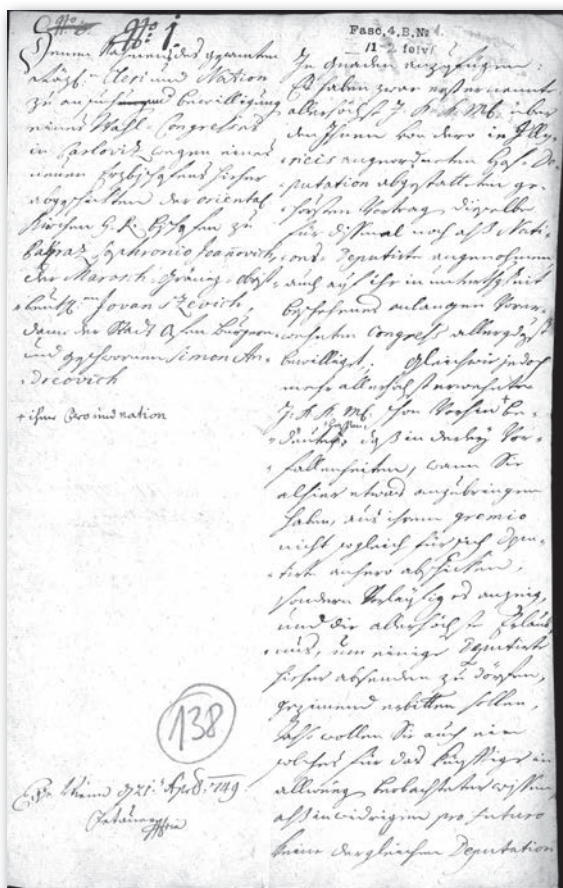 No 1.
Fasc. 4. B. No 1.
/1-2 folv/
Denen Nahmens des gesamten
Cleri und Nation
zu ansuchung und bewilligung
eines Wahl-Congresses
in Carlovitz wegen eines
neuen Erzbischofens hieher
abgeschickten der oriental.
Kirchen G. R. bischofen zu
Sophronio Joannovich,
der Marosch-Gräniz-obrist
Jovan
dann der Stadt Ofen burgern
und geschwornen Simon An-
dreovich
+ ihrer Clero und nation
138
Wienn d 21. April 749
In gnaden anzufügen:
Es haben zwar ersternennte
allerhöchst J. K. K. Mt. über
den Ihnen von dero in Illy-
ricis angeordneten Hof-De-
putation abgestatteten ge-
horsten Vortrag dieselbe
für dißmal noch alß Nati-
ons-Deputirte angenohmen
auch auf ihr in unterthänigkeit
beschehenes anlangen
Congress allergdgst
bewilliget, Gleichwie jedoch
mehr allerhöchst erwehnte
J. K. K. Mt. schon Vorhin be-
deutet, daß in derley Vor-
fallenheiten, wann Sie
alhier etwas anzubringen
haben, aus ihrem gremio
nicht sogleich für sich Depu-
tirte anhero abschicken,
sondern Vorläuffig es anzeig,
und die allerhöchste Erlaub-
nus, um einige Deputirte
hieher absenden zu dörfen,
gezimend erbitten sollen,
Alß wollen Sie auch ein
solches für das künfftige in
allweeg beobachtet wissen
alß in widrigem pro futuro
keine dergleichen Deputation